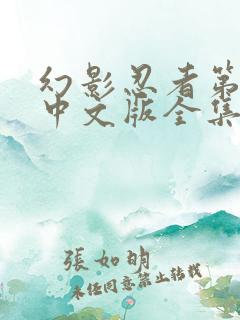 幻影忍者第
中文版全集
張如明
未经同意禁止转载